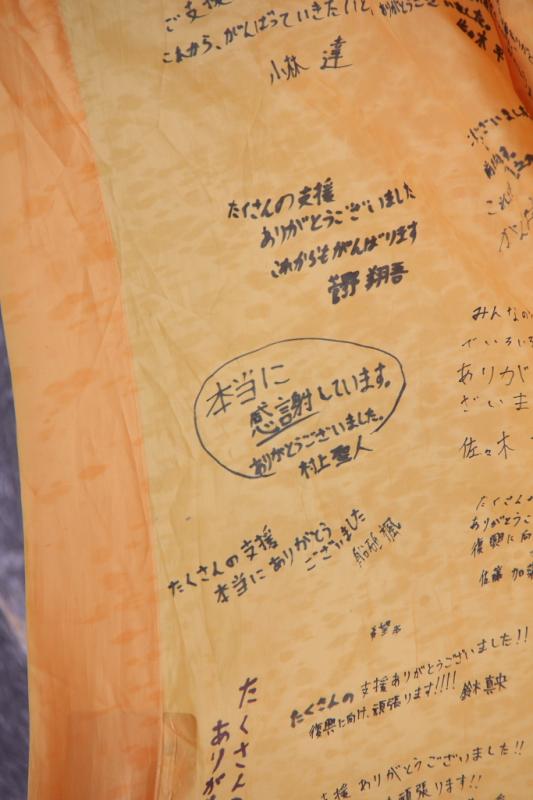 ご支援
これから、がんばっていきたいと、ありがとうござ
小林 達
たくさんの支援
ありがとうございました
これからもがんばります
菅野 翔吾
本当に
感謝しています。
ありがとうございました。
村上 聖人
たくさんの支援
本当に ありがとう
ございました
船砥 楓
希望
たくさんの支援ありがとうございました!!
復興に向け、頑張ります!!!!
鈴木 真央
たくさんの
ありが
支援 ありがとうございました!!
頑張ります!!
ございました
これ
がん
みんなの
ありがと
ざいま
佐々木
たくさんの
ありがとうご
復興に向
佐藤